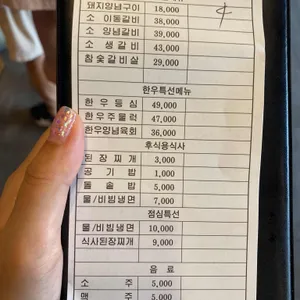 돼지양념구이 18,000
소 이동갈비 38,000
소 양념갈비 39,000
소 생갈비 43,000
참숯갈비살 29,000
한우특선메뉴
한우등심 49,000
한우주물럭 47,000
한우양념육회 36,000
후식용식사
된장찌개 3,000
공기밥 1,000
돌솥밥 5,000
물/비빔냉면 7,000
점심특선
물/비빔냉면 10,000
식사된장찌개 9,000
음료
소주 5,000
맥주 5,000